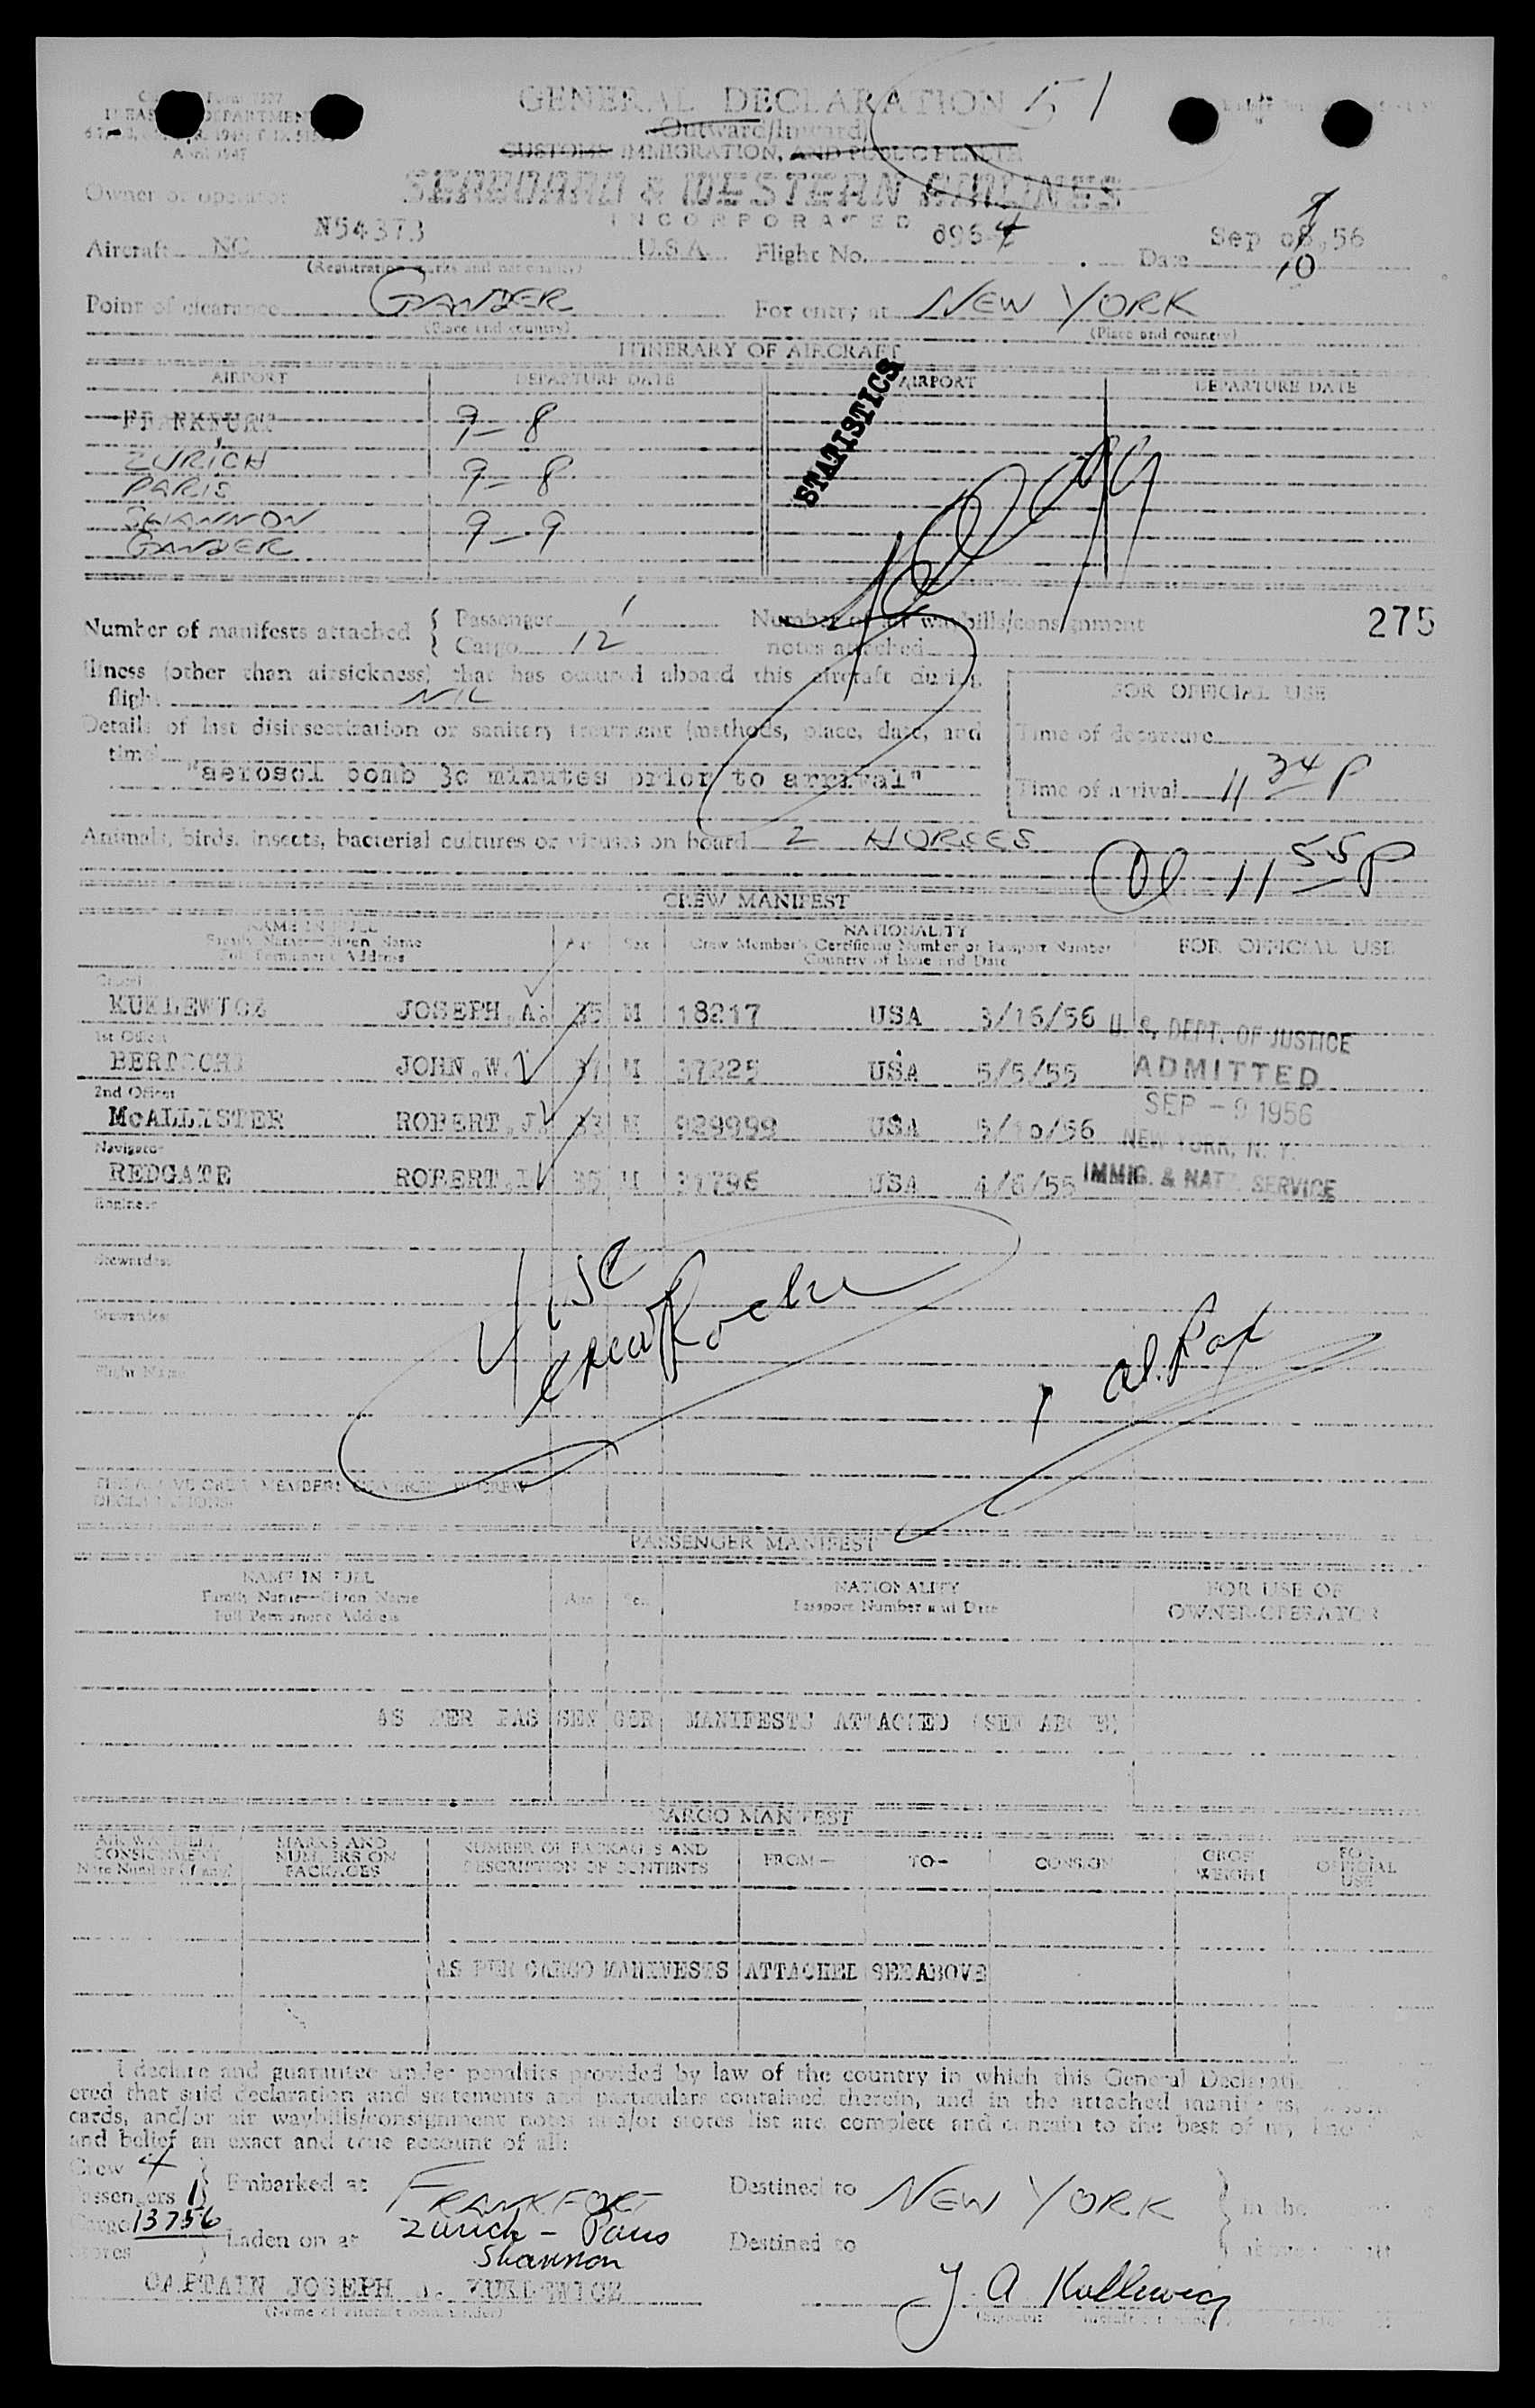 GENERAL DECLARATION 51
Outward/Inward
TREASURY DEPARTMENT
CUSTOMS, IMMIGRATION, AND PUBLIC HEALTH
April 1947
Owner or operator SEABOARD & WESTERN AIRLINES
INCORPORATED
Aircraft NC N54373 U.S.A. Flight No. Date Sep 56
(Registration marks and nationality)
Point of clearance GANDER For entry at NEW YORK
(Place and country) (Place and country)
ITINERARY OF AIRCRAFT
AIRPORT DEPARTURE DATE AIRPORT DEPARTURE DATE
STATISTICS
FRANKFURT 9-8
ZURICH 9-8
PARIS
SHANNON 9-9
GANDER
Number of manifests attached { Passenger 1 Number of air waybills/consignment 275
Cargo 12 notes attached
Illness (other than airsickness) that has occured aboard this aircraft during
flight NIL
FOR OFFICIAL USE
Details of last disinsectization or sanitary treatment (methods, place, date, and
time) "aerosol bomb 30 minutes prior to arrival"
Time of departure
Time of arrival 11 34 P
Animals, birds, insects, bacterial cultures or viruses on board 2 HORSES
11 55 P
CREW MANIFEST
NAME IN FULL
Family Name—Given Name
Full Permanent Address
Age Sex
NATIONALITY
Crew Member's Certificate Number or Passport Number
Country of Issue and Date
FOR OFFICIAL USE
KUKLEWICZ JOSEPH.A. 35 M 18217 USA 3/16/56
1st Officer
BERTSCHI JOHN.W. 37 M 37225 USA 5/5/55
2nd Officer
McALLISTER ROBERT.J. 33 M 929999 USA 5/10/56
Navigator
REDGATE ROBERT. 35 M 31796 USA 4/6/55
U. S. DEPT. OF JUSTICE
ADMITTED
SEP - 9 1956
NEW YORK, N. Y.
IMMIG. & NATZ. SERVICE
Engineer
Stewardess
Stewardess
Flight Name
4 USC
crew
1 al. Pax
THE ABOVE CREW MEMBERS COVERED BY CREW
DECLARATIONS
PASSENGER MANIFEST
NAME IN FULL
Family Name—Given Name
Full Permanent Address
Age Sex
NATIONALITY
Passport Number and Date
FOR USE OF
OWNER-OPERATOR
AS PER PASSENGER MANIFESTS ATTACHED (SEE ABOVE)
CARGO MANIFEST
AIR WAYBILL
CONSIGNMENT
Note Number (if any)
MARKS AND
NUMBERS ON
PACKAGES
NUMBER OF PACKAGES AND
DESCRIPTION OF CONTENTS
FROM— TO— CONSIGN
GROSS
WEIGHT
FOR
OFFICIAL
USE
AS PER CARGO MANIFESTS ATTACHED SEE ABOVE
I declare and guarantee under penalties provided by law of the country in which this General Declarati
ered that said declaration and statements and particulars contained therein, and in the attached manifests,
cards, and/or air waybills/consignment notes and/or stores list are complete and contain to the best of my
and belief an exact and true account of all:
Crew 4 } Embarked at FRANKFORT Destined to NEW YORK
Passengers 1
Cargo 13756 Laden on at Zurich - Paris Destined to
Stores Shannon
CAPTAIN JOSEPH A. KUKLEWICZ J. A. Kuklewicz
(Name of aircraft commander)